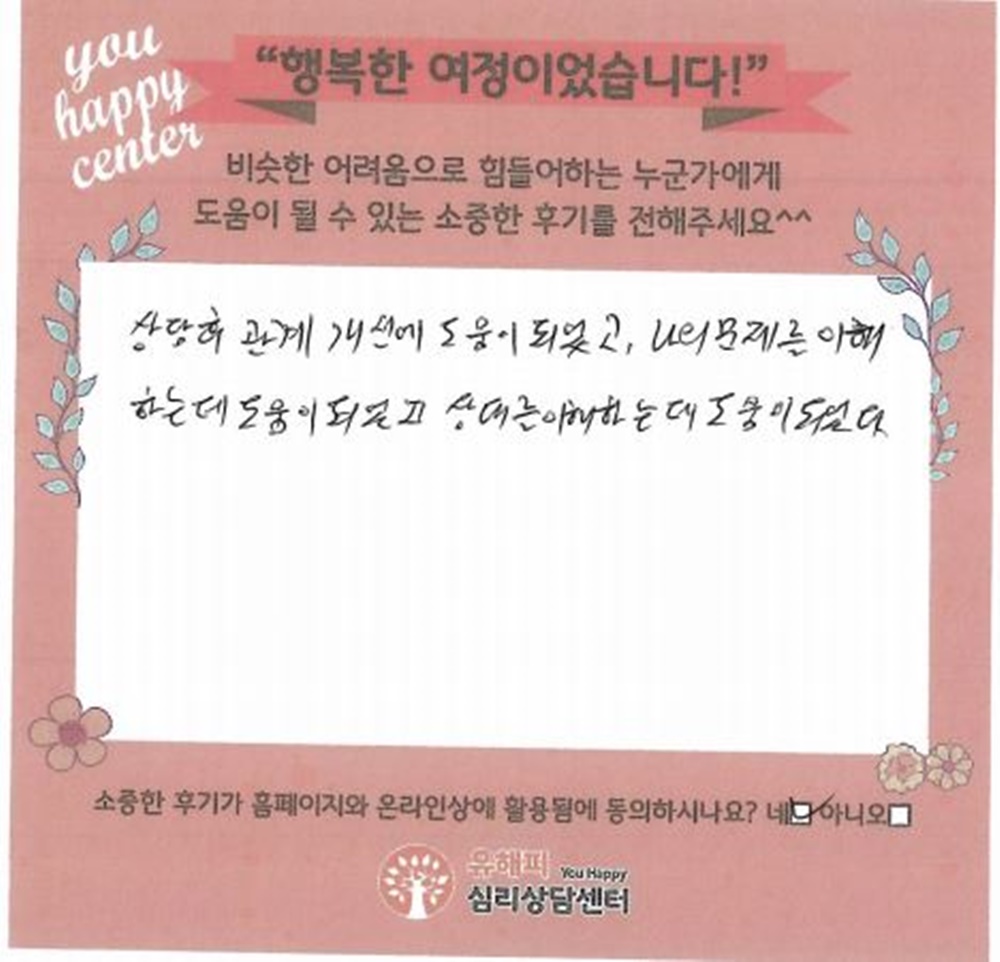 you
happy
center
“행복한 여정이었습니다!”
비슷한 어려움으로 힘들어하는 누군가에게
도움이 될 수 있는 소중한 후기를 전해주세요^^
상담후 관계 개선에 도움이 되었고, 나의 문제를 이해
하는데 도움이 되었고 상대를 이해하는데 도움이 되었다
소중한 후기가 홈페이지와 온라인상에 활용됨에 동의하시나요? 네 아니오
유해피 You Happy
심리상담센터